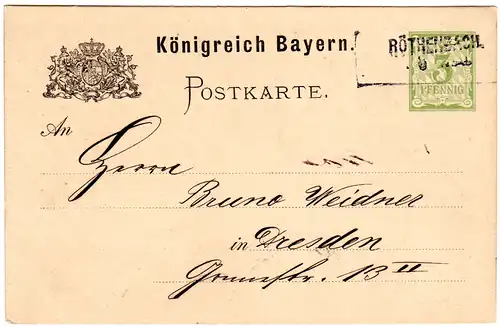 Königreich Bayern.
RÖTHENBACH.
POSTKARTE.
3
PFENNIG
An
Herrn
Bruno Weidner
in Dresden
13 II